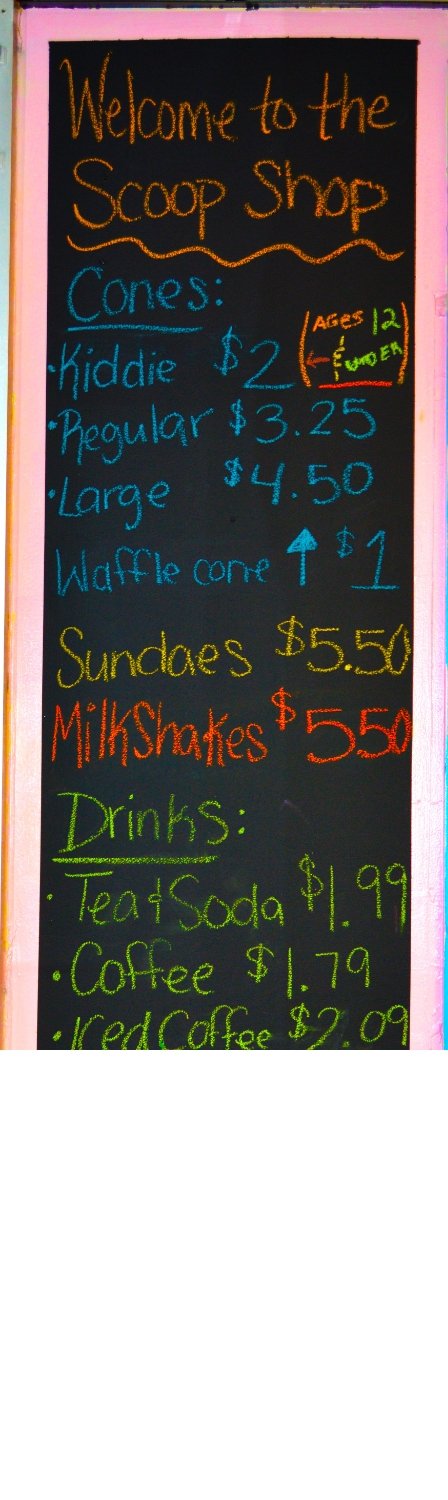 Welcome to the
Scoop Shop
Cones:
·Kiddie $2 (AGES 12
← & UNDER)
·Regular $3.25
·Large $4.50
Waffle cone ↑ $1
Sundaes $5.50
MilkShakes $550
Drinks:
·Tea & Soda $1.99
·Coffee $1.79
·Iced Coffee $2.09